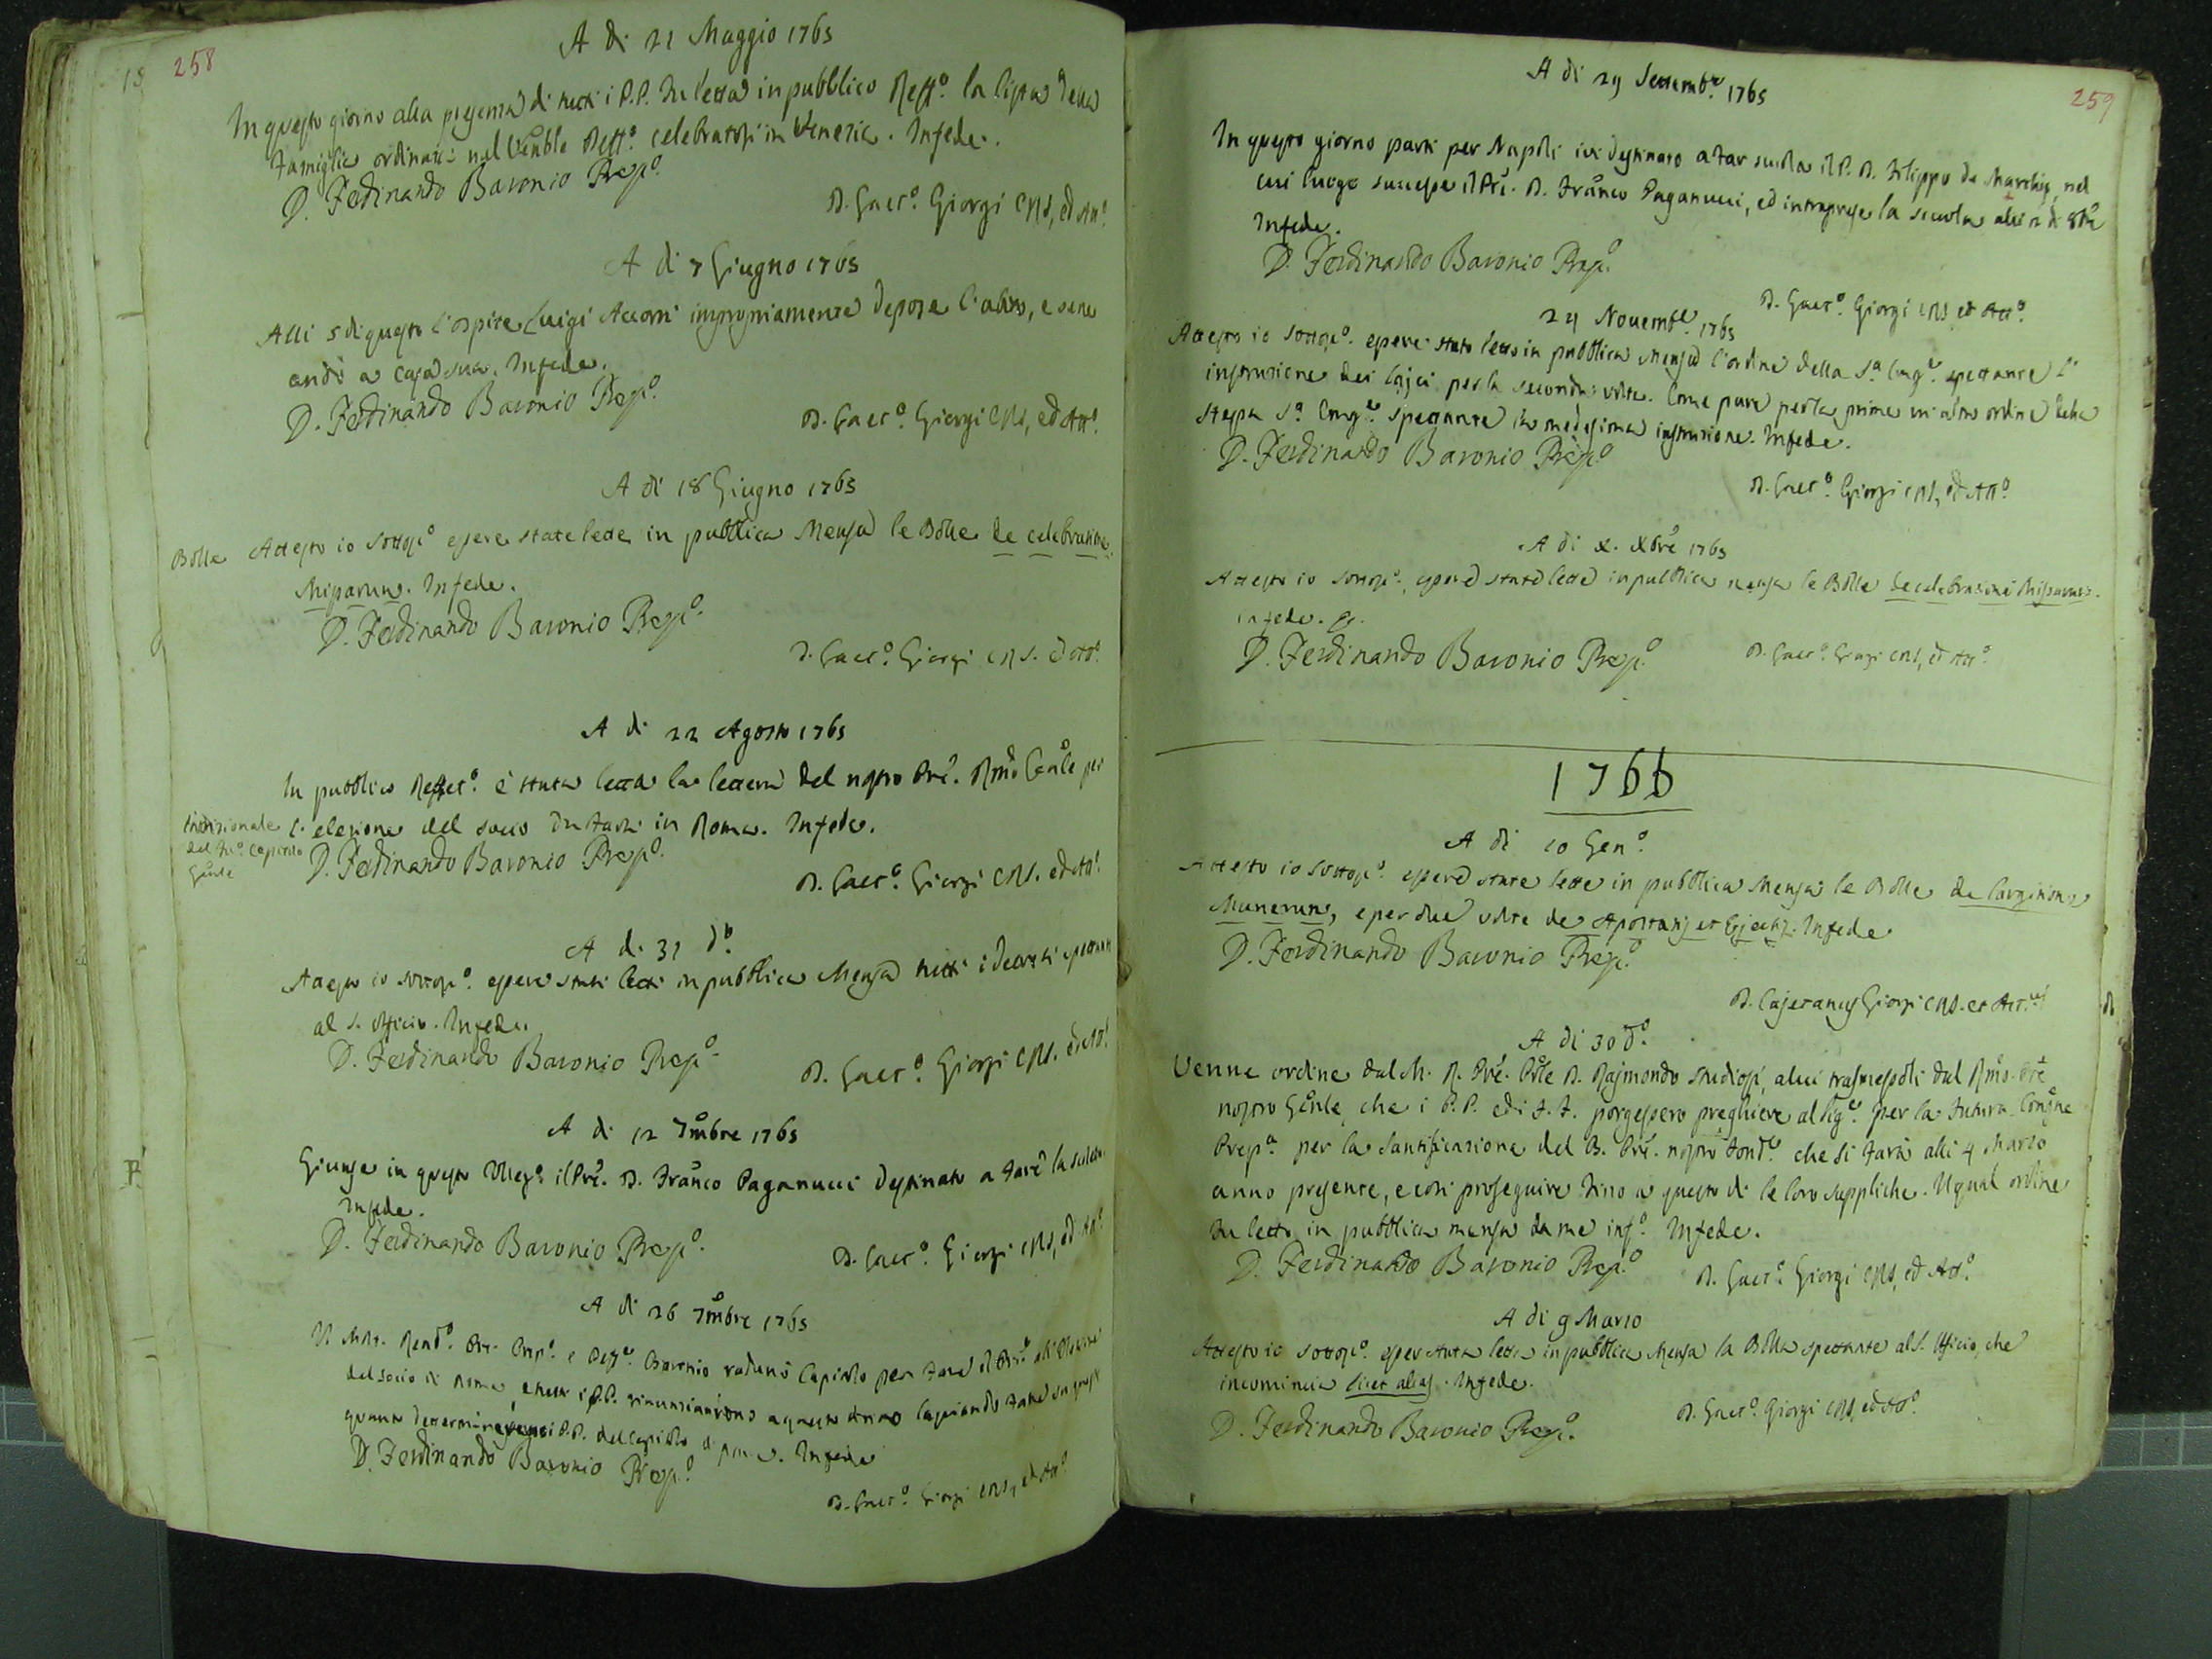 258
A di 21 Maggio 1765
In questo giorno alla presenza di tutti i P.P. fu letta in pubblico Reff.º la lista della
famiglia ordinaria nel Ven̄ble Deff.º celebratosi in Venezia. In fede.
D. Ferdinando Baronio Prep.º
D. Gaet.º Giorgi CRS, ed Att.º
A di 7 Giugno 1765
Alli 5 di questo l'ospite Luigi impropriamente depose l'abito, e sene
andò a casa sua. In fede.
D. Ferdinando Baronio Prep.º
D. Gaet.º Giorgi CRS, ed Att.º
A di 18 Giugno 1765
Bolla
Attesto io sottos.º essere state lette in pubblica Mensa le Bolle de celebratione
Missarum. In fede.
D. Ferdinando Baronio Prep.º
D. Gaet.º Giorgi CRS. ed Att.º
A di 22 Agosto 1765
In pubblico Reffet.º è stata letta la lettera del nostro Prē. Rm̄o Gen̄le per
l'elezione del socio da farsi in Roma. In fede.
del Capitolo
Gen̄le
D. Ferdinando Baronio Prep.º
D. Gaet.º Giorgi CRS. ed Att.º
A di 31 d.º
Attesto io sottos.º essere stati letti in pubblica Mensa tutti i Decreti spettanti
al S. Officio. In fede.
D. Ferdinando Baronio Prep.º
D. Gaet.º Giorgi CRS. ed Att.º
A di 12 7mbre 1765
Giunse in questo Colleg.º il Prē. D. Fran̄co Paganucci destinato a fare la scuola
In fede.
D. Ferdinando Baronio Prep.º
D. Gaet.º Giorgi CRS, ed Att.º
A di 26 7mbre 1765
Il Rend.º Prep.º e Baronio radunò Capitolo per fare
del socio di Roma, e tutti i P.P. rinunciarono a questo lasciando fare
quanto determinassero i P.P. del Capitolo di Roma. In fede
D. Ferdinando Baronio Prep.º
D. Gaet.º Giorgi CRS, ed Att.º
259
A di 29 Settemb.e 1765
In questo giorno partì per Napoli ivi destinato a far scuola il P. D. Filippo de Marchis, nel
cui luogo successe il Prē. D. Fran̄co Paganucci, ed intraprese la scuola alli 2 di 8bre
In fede.
D. Ferdinando Baronio Prep.º
D. Gaet.º Giorgi CRS ed Att.º
24 Novemb.e 1765
Attesto io sottos.º essere stato letto in pubblica Mensa l'ordine della S.a Cong.e spettante l'
instruzione dei laici per la seconda volta. Come pure per la prima un altro ordine della
stessa S.a Cong.e spettante la medesima instruzione. In fede.
D. Ferdinando Baronio Prep.º
D. Gaet.º Giorgi CRS, ed Att.º
A di Xbrē 1765
Attesto io sottos.º, essere state lette in pubblica mensa le Bolle de celebratione Missarum.
in fede.
D. Ferdinando Baronio Prep.º
D. Gaet.º Giorgi CRS, ed Att.º
1766
A di 10 Gen.º
Attesto io sottos.º essere state lette in pubblica Mensa le Bolle de largitione
Munerum, e per due volte de Apostatis et Ejectis. In fede.
D. Ferdinando Baronio Prep.º
D. Cajetanus Giorgi CRS. et Act.us
A di 30 d.º
Venne ordine dal M. R. Prē. Prl̄e D. Rajmondo Studiosi, a lui trasmessoli dal Rm̄o Prē
nostro Gen̄le, che i P.P. ed i F.F. porgessero preghiere al Sig.e per la futura Conḡne
Prep.a per la Santificazione del B. Prē. nostro Fond.e che si farà alli 4 Marzo
anno presente, e così proseguire fino a questo di le loro suppliche. Il qual ordine
fu letto in pubblica mensa da me inf.º In fede.
D. Ferdinando Baronio Prep.º
D. Gaet.º Giorgi CRS, ed Att.º
A di 9 Marzo
Attesto io sottos.º esser stata letta in pubblica Mensa la Bolla spettante al S. Ufficio, che
incomincia licet alias. In fede.
D. Ferdinando Baronio Prep.º
D. Gaet.º Giorgi CRS, ed Att.º